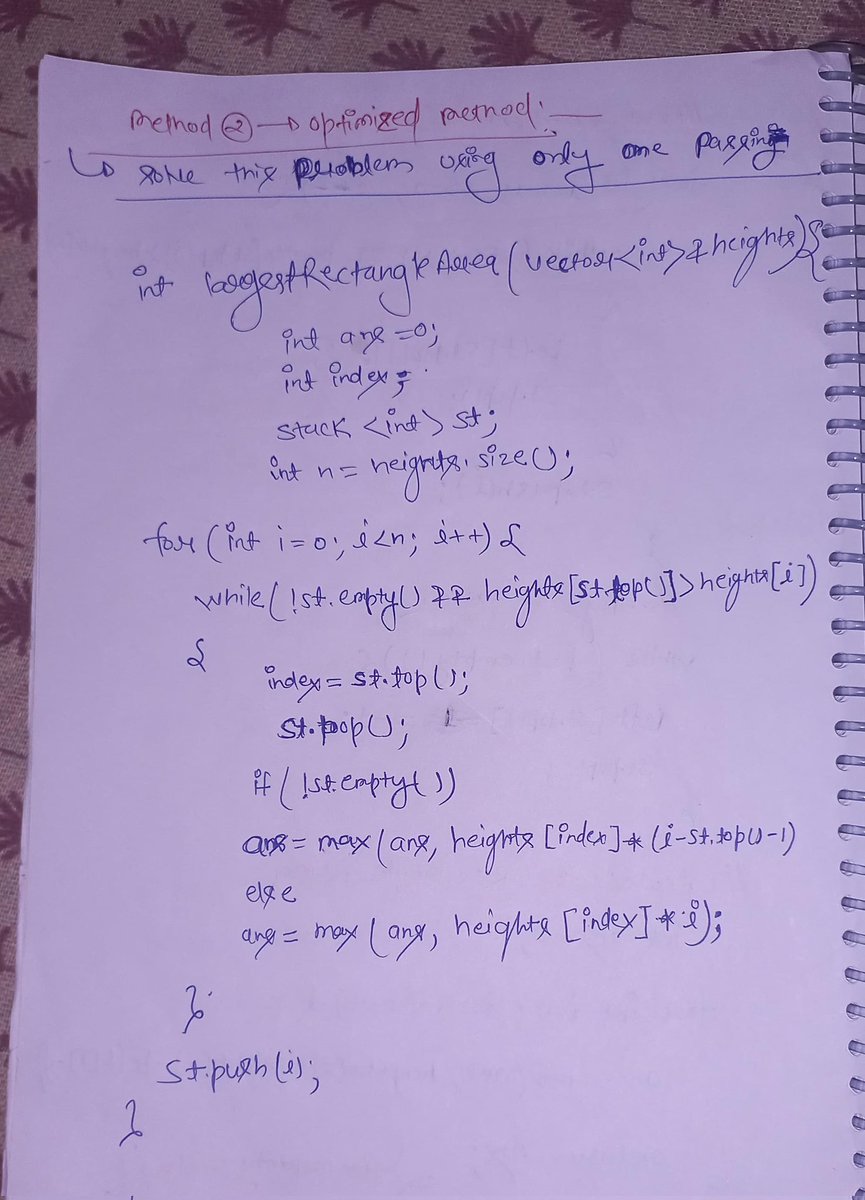 Method ② → optimized method:—
↳ solve this problem using only one passing
int largestRectangleArea(vector<int>&heights){
int ans=0;
int index;
stack <int> st;
int n= heights.size();
for(int i=0; i<n; i++){
while(!st.empty() && heights[st.top()]>heights[i])
{
index= st.top();
st.pop();
if(!st.empty())
ans= max(ans, heights[index]*(i-st.top()-1)
else
ans= max(ans, heights[index]*i);
}
st.push(i);
}